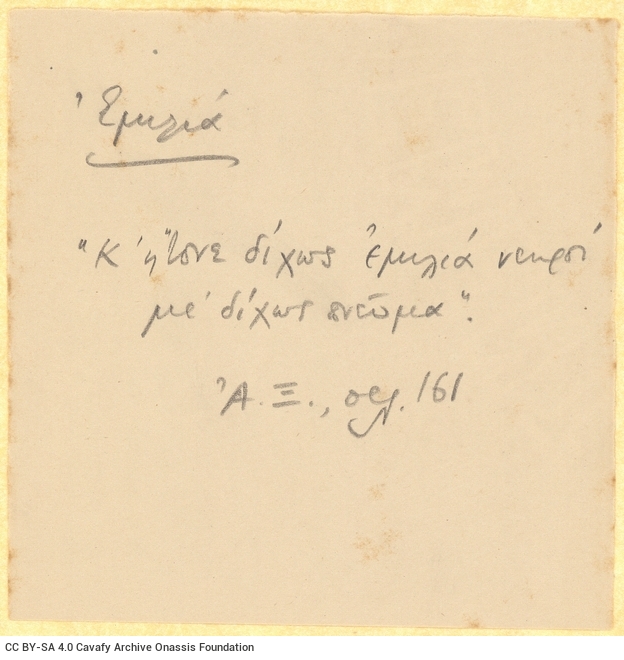 Ἐμιλιά
"Κ' ἤτονε δίχως ἐμιλιά νεκροί
μέ δίχως πνεῦμα".
Ἀ. Ξ., σελ. 161
CC BY-SA 4.0 Cavafy Archive Onassis Foundation